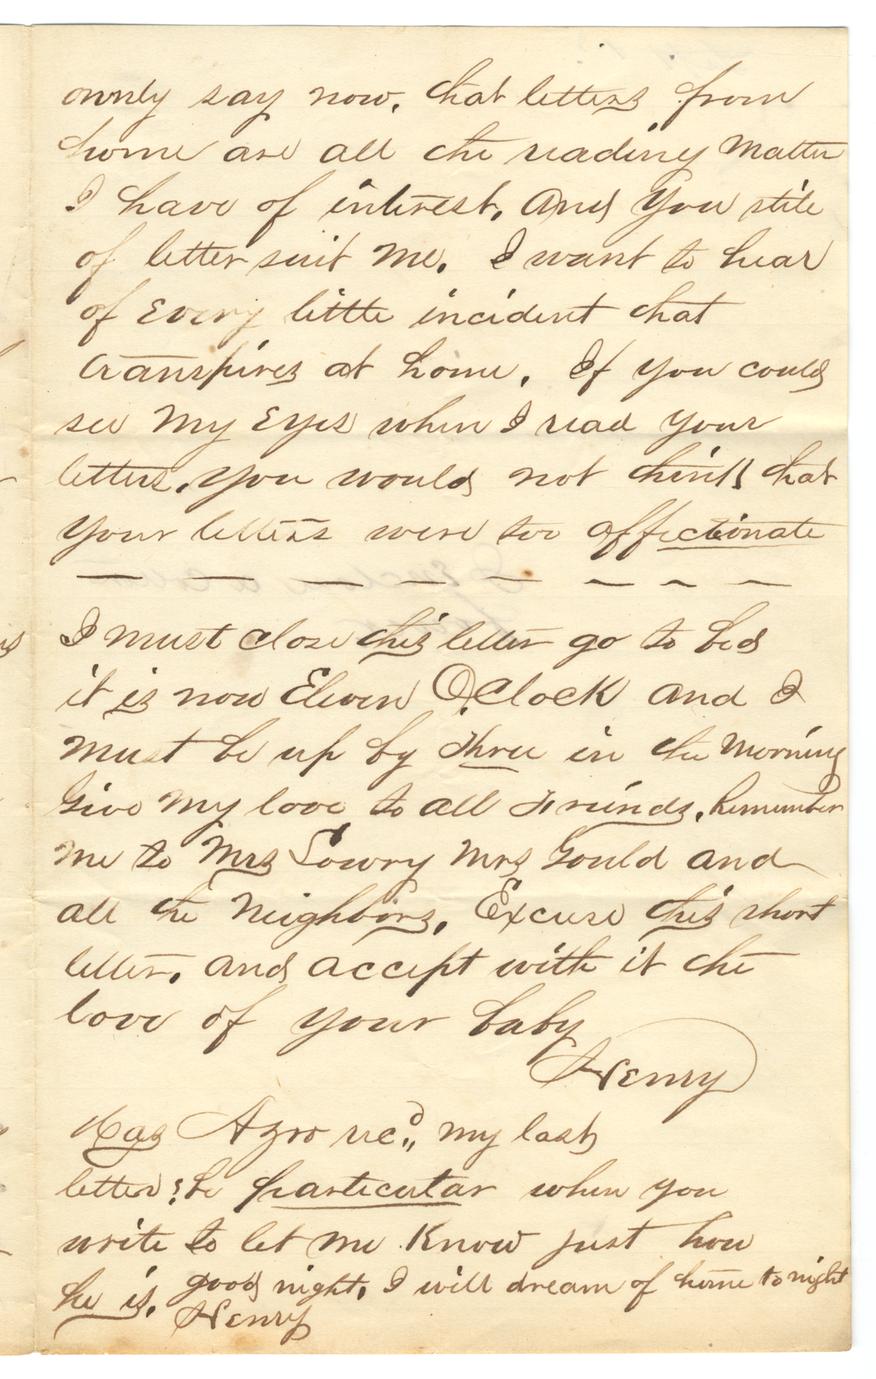 ownly say now, that letters from
home are all the reading matter
I have of interest, and you stile
of letter suit me. I want to hear
of Every little incident that
transpires at home. If you could
see my Eyes when I read your
letters, you would not think that
your letters were too affectionate
I must close this letter go to bed
it is now Eleven O,Clock and I
must be up by Three in the Morning
Give my love to all Friends, Remember
me to Mrs Lowry Mrs Gould and
all the Neighbors, Excuse this short
letter, and accept with it the
love of your baby
Henry
Has Azro recd,, my last
letter? be particular when you
write to let me Know just how
he is, good night, I will dream of home to night
Henry